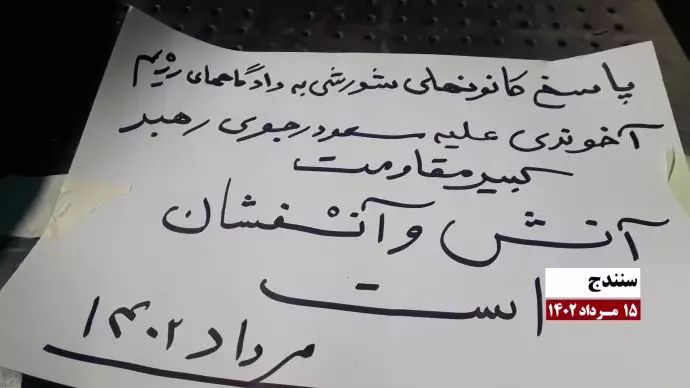 پاسخ کانونهای شورشی به دادگاههای رژیم
آخوندی علیه مسعود رجوی رهبر
کبیر مقاومت
آتش و آتشفشان
است
مرداد ۱۴۰۲
سنندج
۱۵ مرداد ۱۴۰۲